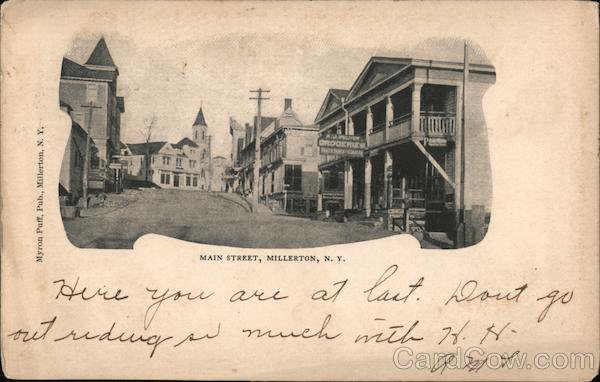 GROCERIES
Myron Puff, Pub., Millerton, N. Y.
MAIN STREET, MILLERTON, N. Y.
Here you are at last. Dont go
out riding so much with H. H.
CardCow.com